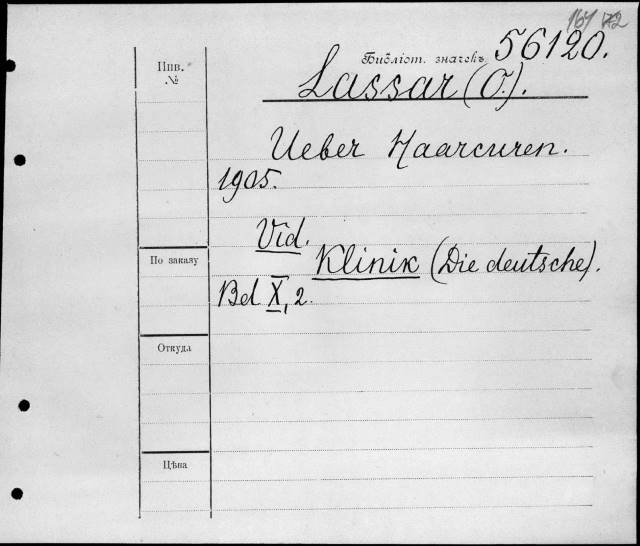 Инв.
№
Библіот. значекъ 56120.
Lassar (O.).
Ueber Haarcuren.
1905.
Vid.
По заказу
Klinik (Die deutsche).
Bd X, 2.
Откуда
Цѣна